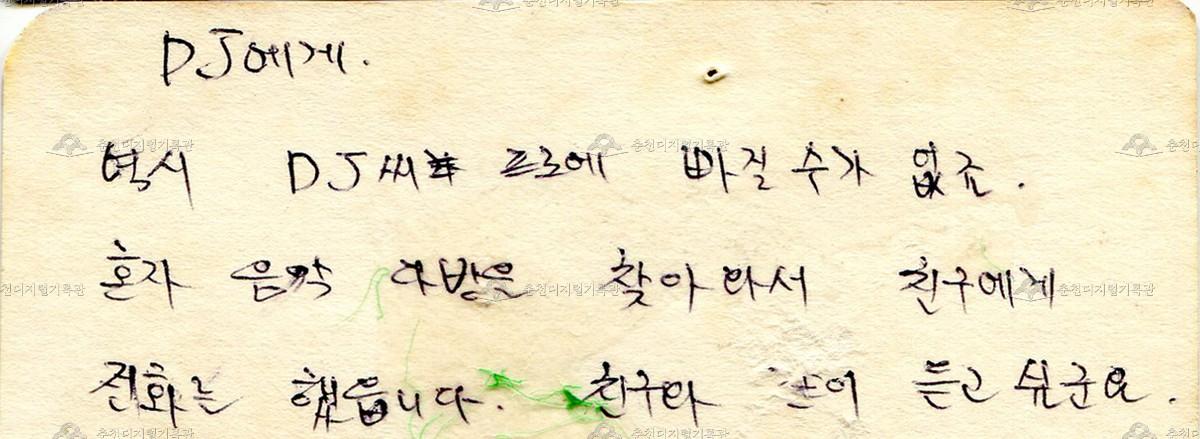 DJ에게.
역시 DJ씨 프로에 빠질 수가 없죠.
혼자 음악 다방을 찾아 와서 친구에게
전화는 했읍니다. 친구와 듣고 싶군요.
춘천디지털기록관